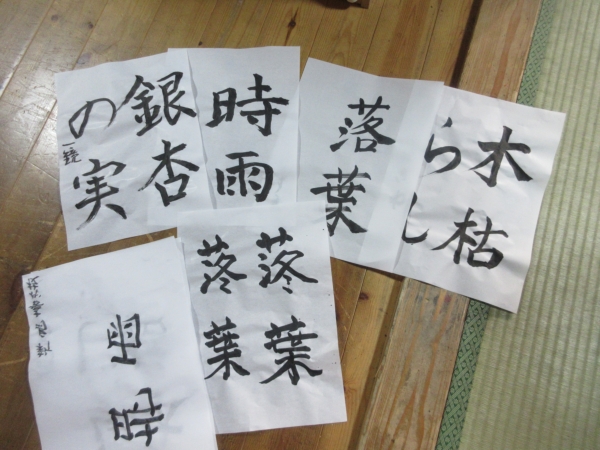 銀杏
の実
時雨
落葉
木枯
らし
落葉
落葉
時雨